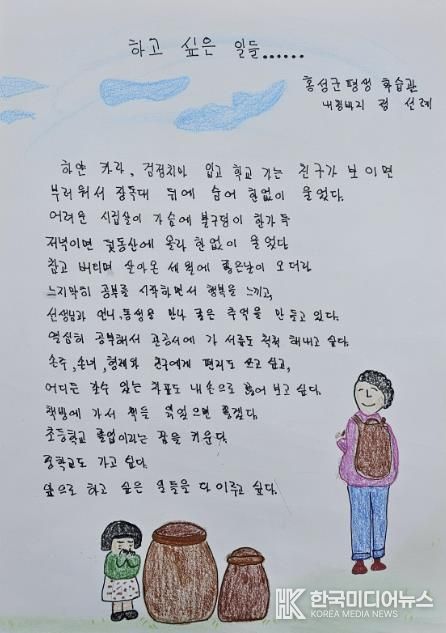 하고 싶은 일들......
홍성군 평생 학습관
선례
하얀 카라, 검정치마 입고 학교 가는 친구가 보이면
부러워서 장독대 뒤에 숨어 한없이 울었다.
어려운 시집살이 가슴에 불구덩이 한가득
저녁이면 뒷동산에 올라 한없이 울었다
참고 버티며 살아온 세월에 좋은날이 오더라
느지막히 공부를 시작하면서 행복을 느끼고,
선생님과 언니, 동생을 만나 좋은 추억을 만들고 있다.
열심히 공부해서 관공서에 가 서류도 척척 해내고 싶다.
손주, 손녀, 형제와 친구에게 편지도 쓰고 싶고,
어디든 갈수 있는 차표도 내 손으로 끊어 보고 싶다.
책방에 가서 책을 읽었으면 좋겠다.
초등학교 졸업이라는 꿈을 키운다.
중학교도 가고 싶다.
앞으로 하고 싶은 일들을 다 이루고 싶다.
HK 한국미디어뉴스
KOREA MEDIA NEWS